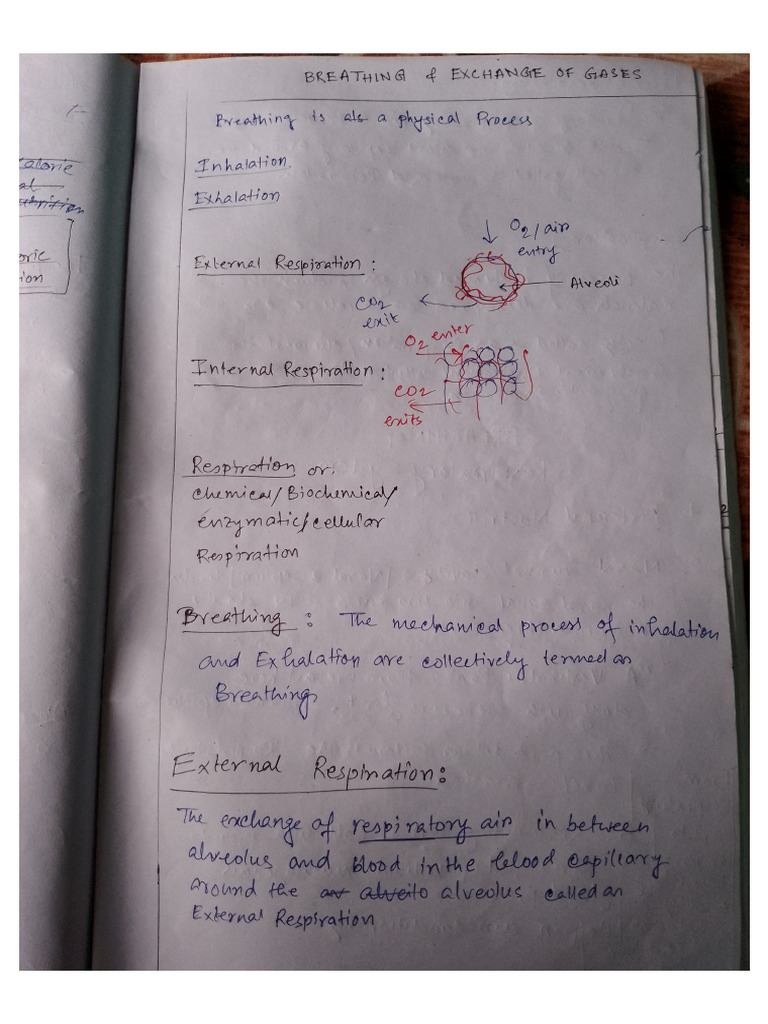 BREATHING & EXCHANGE OF GASES
Breathing is als a physical Process
Inhalation
Exhalation
O2/air
entry
External Respiration :
Alveoli
CO2
exit
O2 enter
Internal Respiration :
CO2
exits
Respiration or.
chemical/Biochemical/
enzymatic/cellular
Respiration
Breathing : The mechanical process of inhalation
and Exhalation are collectively termed as
Breathing
External Respiration:
The exchange of respiratory air in between
alveolus and blood in the blood capillary
around the alveolus called as
External Respiration